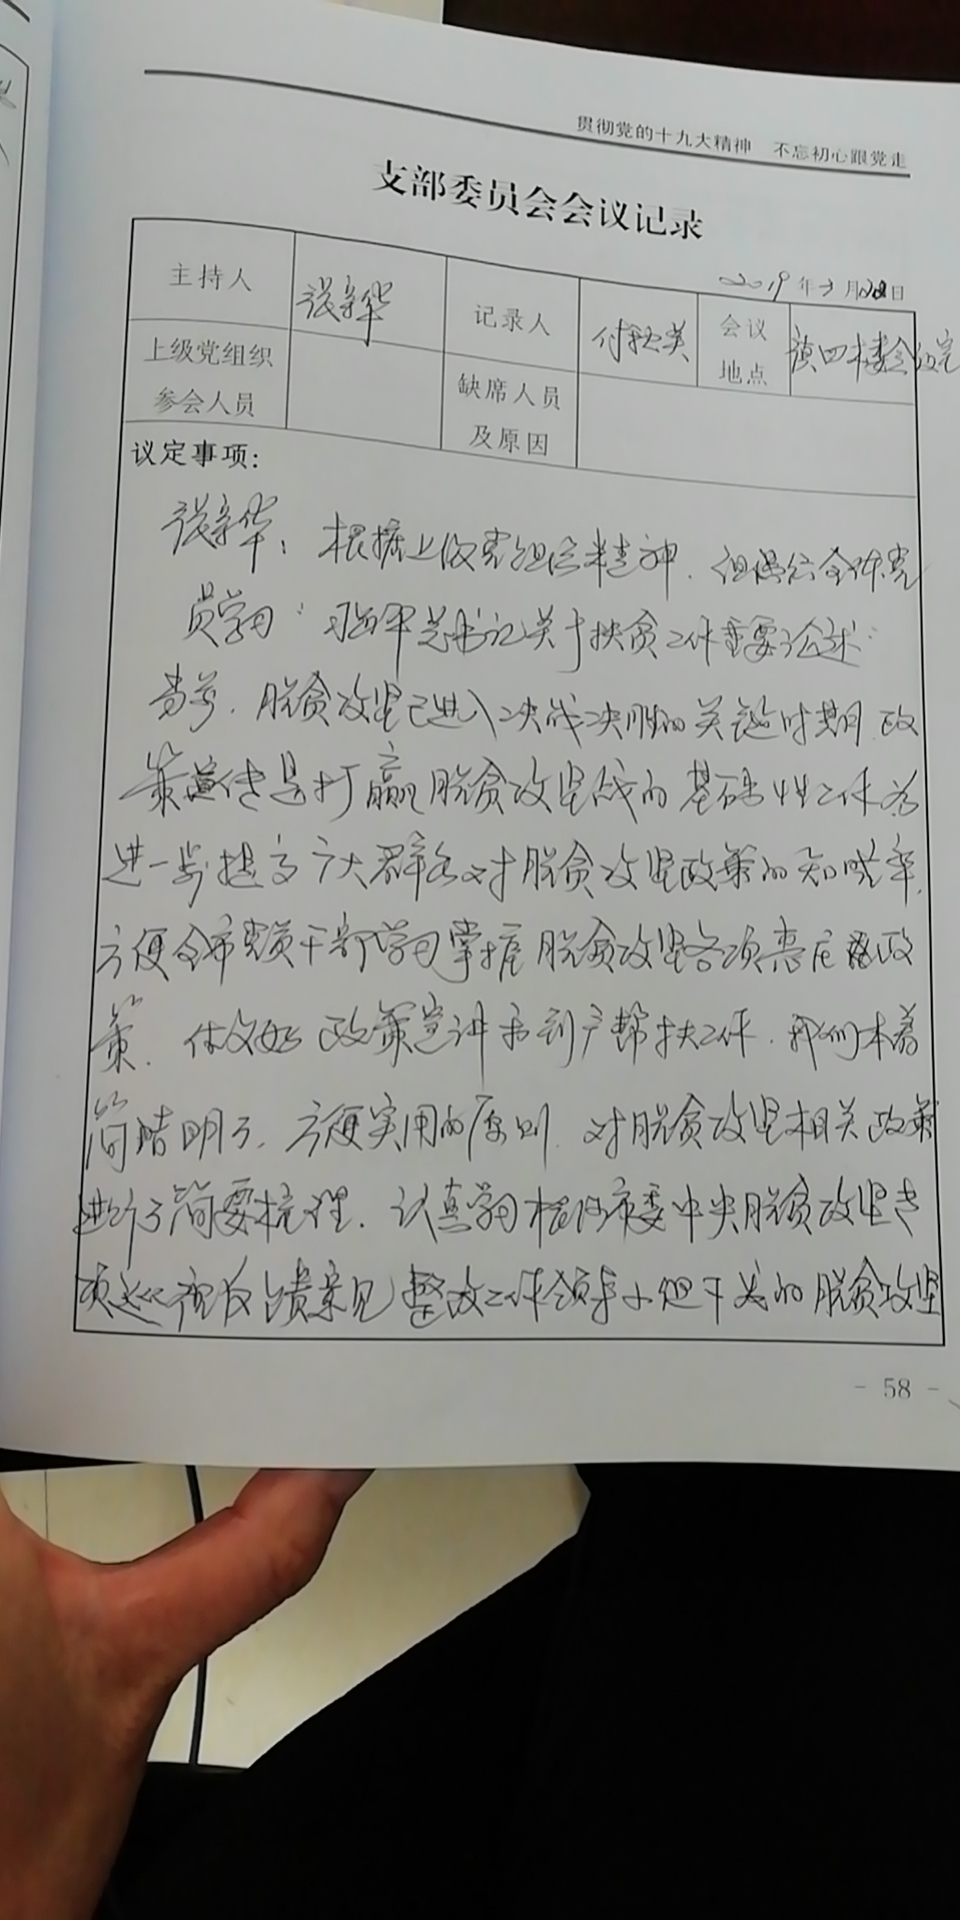 贯彻党的十九大精神 不忘初心跟党走
支部委员会会议记录
2019年3月28日
主持人 张新华 记录人 付 英 会议地点 镇四楼会议室
上级党组织参会人员 缺席人员及原因
议定事项:
张新华: 根据上级党组织精神, 组织全体党
员学习: 习近平总书记关于扶贫工作重要论述:
当前, 脱贫攻坚已进入决战决胜的关键时期, 政
策宣传是打赢脱贫攻坚战的基础性工作, 为
进一步提高广大群众对脱贫攻坚政策的知晓率,
方便全市党员干部学习掌握脱贫攻坚各项惠民政
策, 做好政策宣讲和到户帮扶工作, 我们本着
简洁明了, 方便实用的原则, 对脱贫攻坚相关政策
进行了简要梳理, 认真学习 市委中央脱贫攻坚专
项巡视反馈意见整改工作领导小组下发的脱贫攻坚
- 58 -